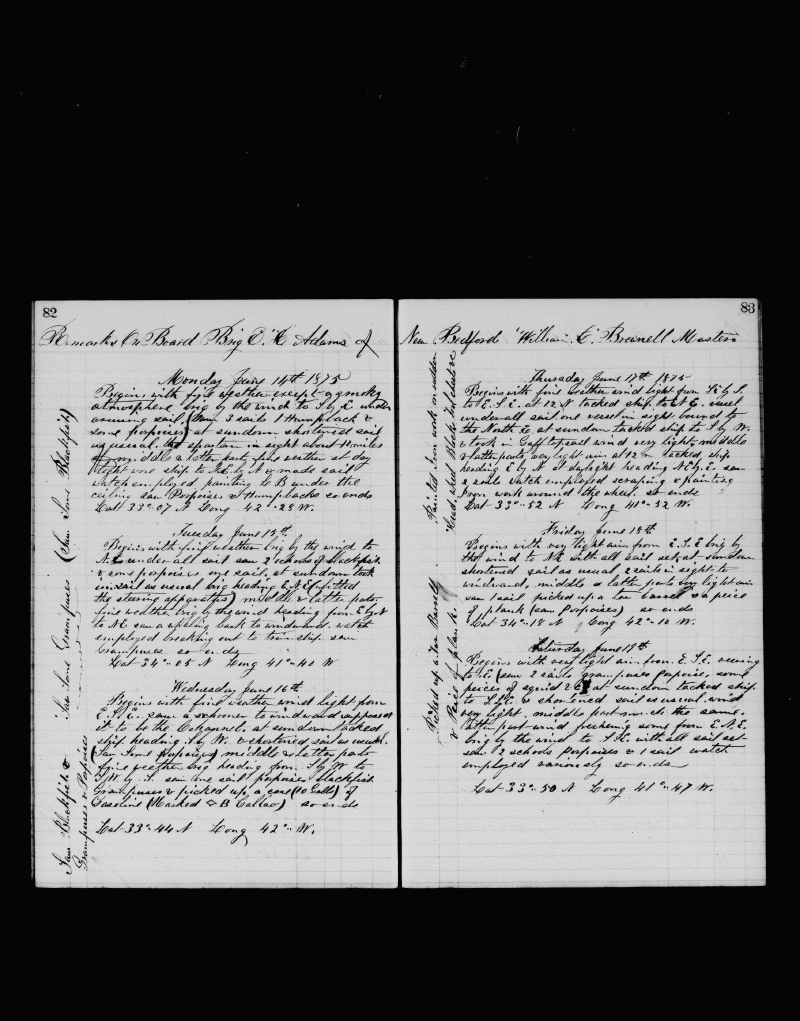 82
Remarks On Board Brig E. H. Adams of
Monday June 14th 1875
Begins with fine weather except a smoky
atmosphere brig by the wind to S by E under
cruising sail (saw 3 sails 1 Humpback &
some porpoises) at sundown shortened sail
as usual. the Spartan in sight about 10 miles
off middle & latter part fine weather at day
light wore ship to N.E. by N & made sail
watch employed painting to B under the
ceiling saw Porpoises & Humpbacks so ends
Latt 33°-07 N Long 42°-28 W.
Tuesday June 15th
Begins with fine weather brig by the wind to
N.E. under all sail saw 2 schools of blackfish
& some porpoises one sail. at sundown took
in sail as usual brig heading E.N.E. (fitted
the steering apparatus) middle & latter parts
fine weather brig by the wind heading from E by N
to NE saw a whaling bark to windward. watch
employed breaking out to trim ship saw
Grampuses so ends
Lat 34°-05 N Long 41°-40 W
Wednesday June 16th
Begins with fine weather wind light from
saw a schooner to windward supposed
it to be the at sundown tacked
ship heading S. by W. & shortened sail as usual
saw some porpoises) middle & latter part
fine weather brig heading from S by W to
S.W. by S. saw one sail porpoises blackfish
Grampuses & picked up a case (10 Galls) of
Gasoline (Marked B Callao) so ends
Lat 33°-44 N Long 42° W.
Saw Some Grampuses (Saw Some Blackfish)
Saw Blackfish &
Grampuses & Porpoises
83
New Bedford William C. Brownell Master
Thursday June 17th 1875
Begins with fine weather wind light from SE by S
to E.S.E. at 12 N tacked ship to N.E. vessel
under all sail one vessel in sight bound to
the North E. at sundown tacked ship to S by W.
& took in Gafftopsail wind very light, middle
& latter parts very light air at 12 m tacked ship
heading E by N at daylight heading N.E. by E. saw
2 sails watch employed scraping & painting
Iron work around the wheel. so ends
Lat 33°-52 N Long 41°-52 W.
Friday June 18th
Begins with very light air from E.S.E brig by
the wind to NE with all sail set, at sundown
shortened sail as usual 2 sails in sight to
windward, middle & latter parts very light air
saw 1 sail picked up a tar barrel & a peice
of plank (saw Porpoises) so ends
Lat 34°-18 N Long 42°-10 W.
Saturday June 19th
Begins with very light air from E.S.E. veering
to E. (saw 2 sails grampuses porpoise, some
peices of squid at sundown tacked ship
to S.S.E. & shortened sail as usual, wind
very light, middle part much the same.
latter part wind freshening some from E.N.E.
brig by the wind to S.E. with all sail set
saw 2 schools Porpoises & 1 sail watch
employed variously so ends
Lat 33°-50 N Long 41°-47 W.
Painted Iron work on rudder
head, wheel
Picked up a Tar Barell
& Peice of plank.